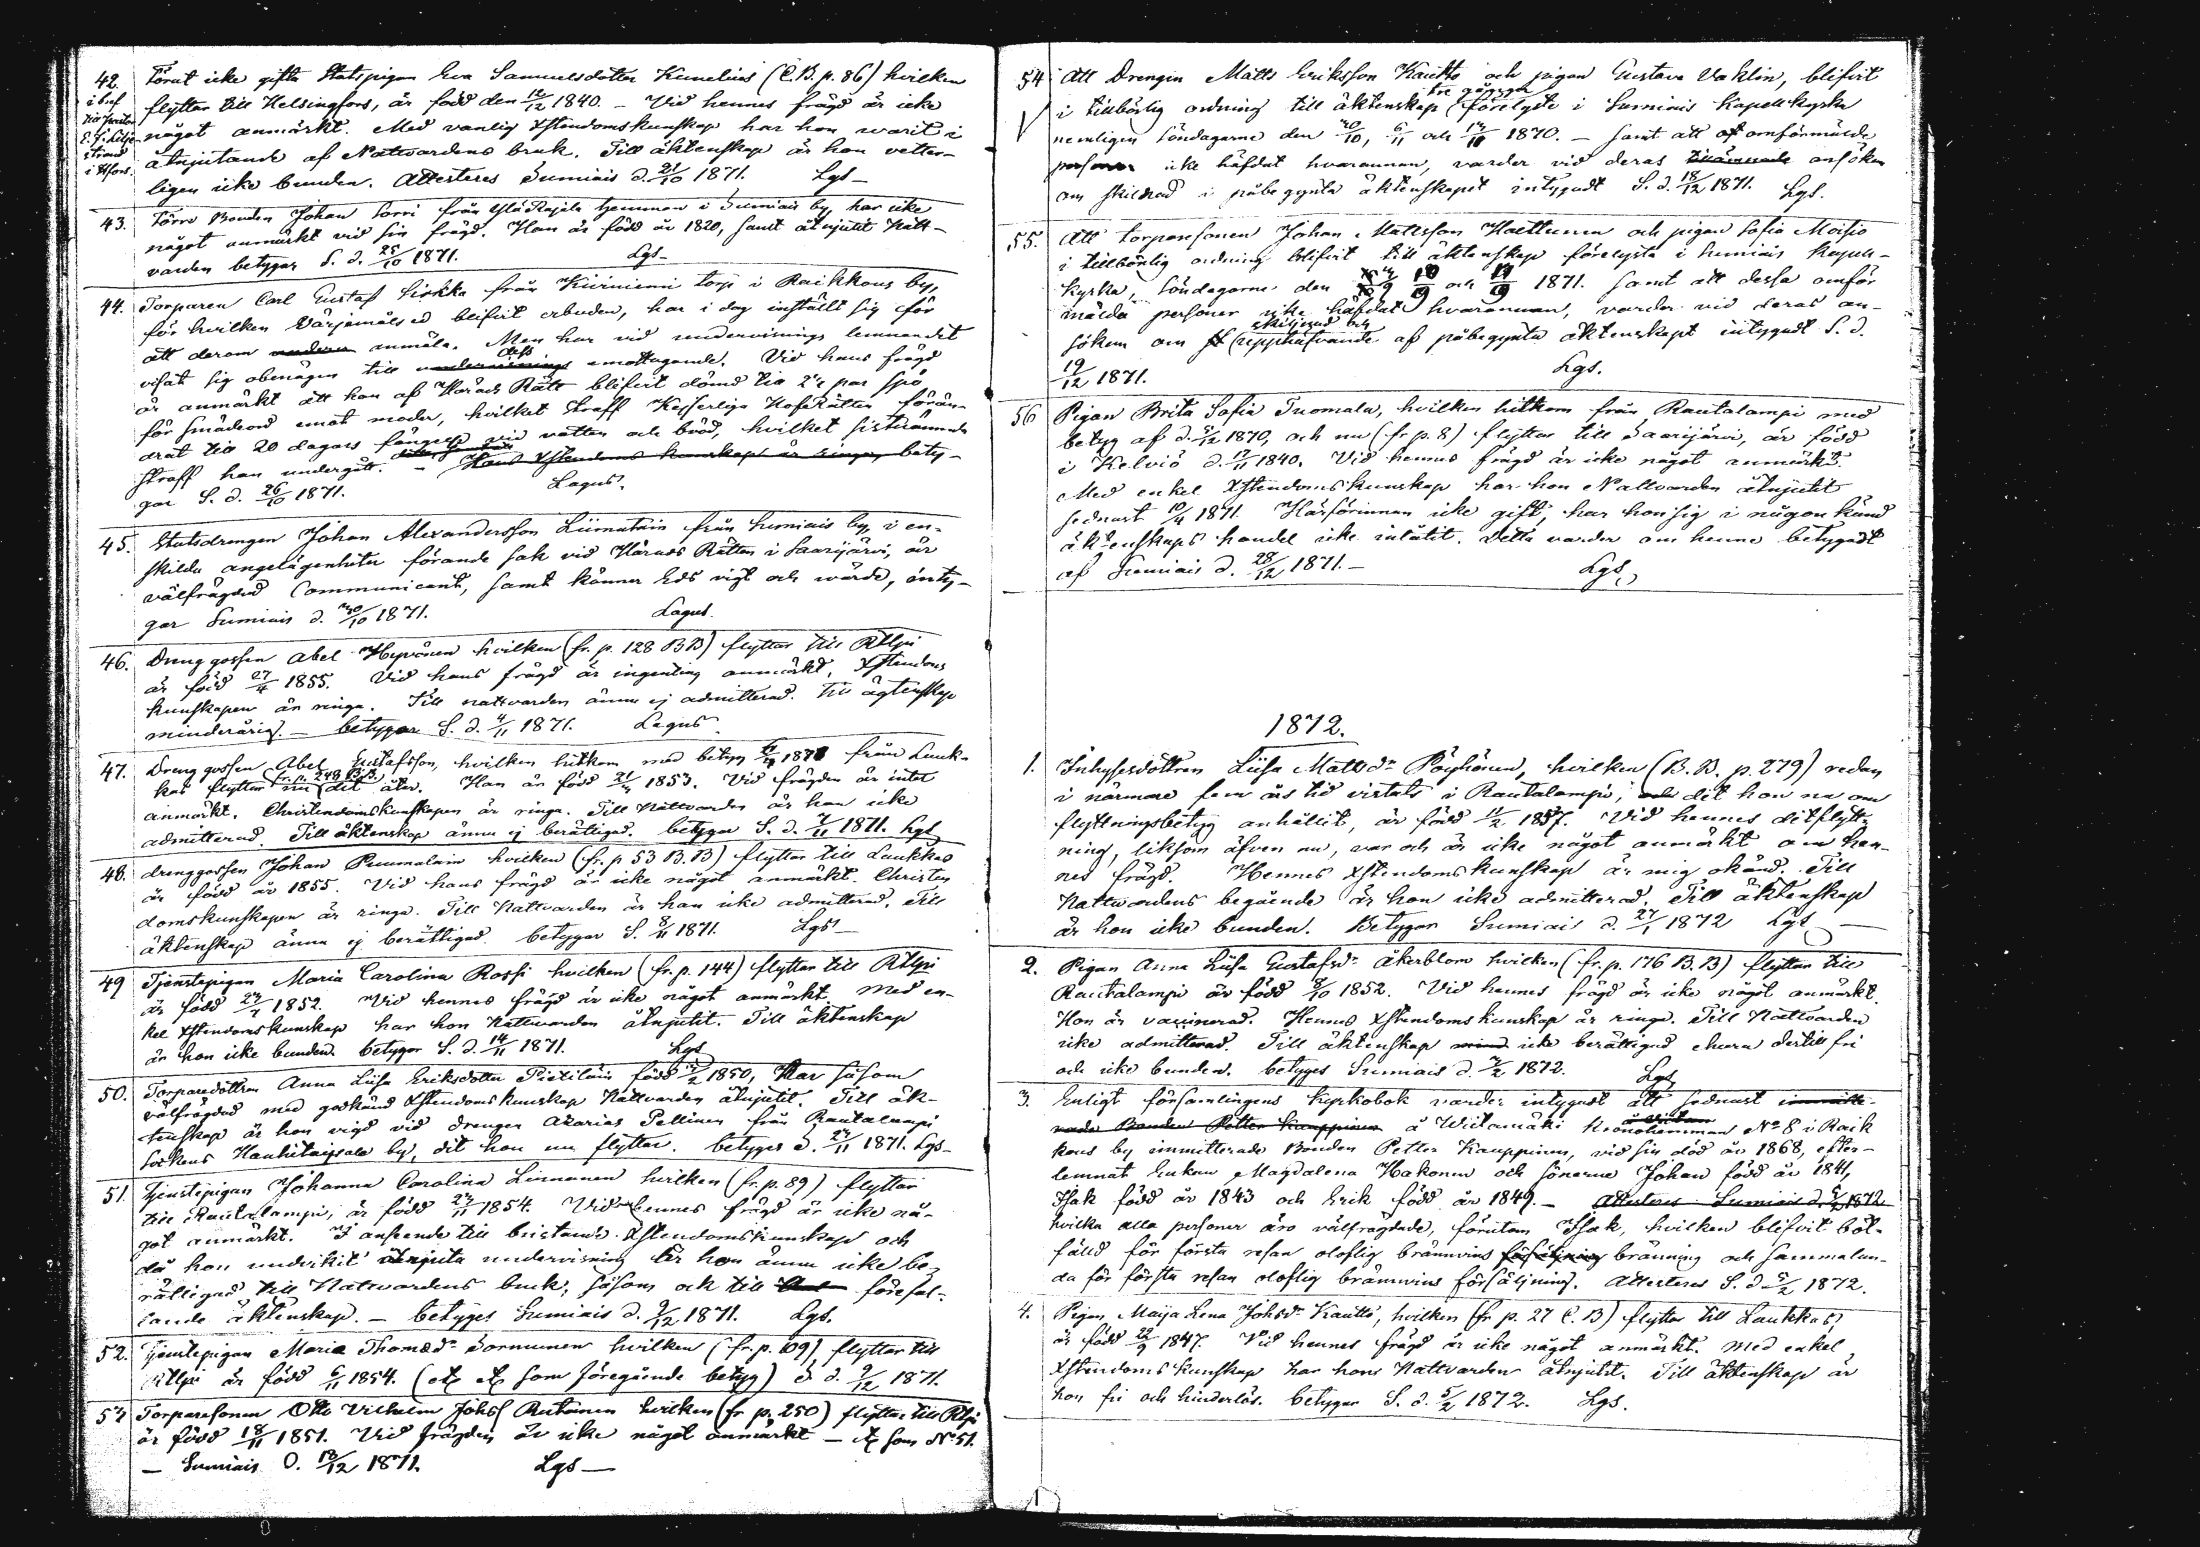 42. Förut icke gifta Statspigan Eva Samuelsdotter Kinelius (C.B. p. 86) hvilken
flyttar till Helsingfors, är född den 12/12 1840. – Vid hennes frägd är icke
något anmärkt. Med vanlig Xstendomskunskap har hon warit i
åtnjutande af Nattwardens bruk. Till äktenskap är hon vetter-
ligen icke bunden. Attesteres Sumiais d. 21/10 1871. Lgs –
43. Förre Bonden Johan Sorri från Ylä Rajala hemman i Sumiais by har icke
något anmärkt vid sin frägd. Han är född år 1820, samt åtnjutit Natt-
varden betygar S. d. 25/10 1871. Lgs –
44. Torparen Carl Gustaf Siekka från Kiviniemi torp i Raikkaus by,
för hvilken Värjemåls ed blifvit erbuden, har i dag inställt sig för
att derom anmäla. Men har vid undervisnings lemnandet
visat sig obenägen till dess emottagande. Vid hans frägd
är anmärkt att han af Härads Rätt blifvit dömd till 24 par spö
för smädeord emot moder, hvilket straff Kejserliga HofsRätten förän-
drat till 20 dagars fängelse vid vatten och bröd, hvilket sistnämnde
straff han undergått. – Hans Xstendoms kunskap är ringa, bety-
gar S. d. 26/10 1871. Lagus.
45. Statsdrengen Johan Alexandersson Liimatain från Sumiais by, i en-
skilda angelägenheter förande sak vid Härads Rätten i Saarijärvi, är
välfrägdad Communicant, samt känner Eds vigt och wärde, inty-
gar Sumiais d. 30/10 1871. Lagus.
46. Drenggossen Abel Hyvönen hvilken (fr. p. 128 BB) flyttar till Rtlpi
är född 27/4 1855. Vid hans frägd är ingenting anmärkt, Xstendoms
kunskapen är ringa. Till nattvarden ännu ej admitterad. Till ägtenskap
minderårig. – betygar S. d. 4/11 1871. Lagus
47. Drenggossen Abel Gustafsson, hvilken hitkom med betyg 1871 från Lauk-
kas flyttar nu (fr. p. 248 BB) dit åter. Han är född 21/4 1853. Vid frägden är intet
anmärkt. Christendomskunskapen är ringa. Till Nattvarden är han icke
admitterad. Till äktenskap ännu ej berättigad. betygar S. d. 7/11 1871. Lgs
48. drenggossen Johan Puumalain hvilken (fr. p 53 B.B) flyttar till Laukkas
är född år 1855. Vid hans frägd är icke något anmärkt. Christen
domskunskapen är ringa. Till Nattvarden är han icke admitterad. Till
äktenskap ännu ej berättigad betygar S. 8/11 1871. Lgs –
49 Tjenstepigan Maria Carolina Rossi hvilken (fr. p. 144) flyttar till Rtlpi
är född 1852. Vid hennes frägd är icke något anmärkt. Med en-
kel Xstendomskunskap har hon Nattvarden åtnjutit. Till äktenskap
är hon icke bunden. betygar S. d. 14/11 1871. Lgs
50. Torparedottren Anna Liisa Eriksdotter Pietiläin född 1850, Har såsom
välfrägdad med godkänd Xstendomskunskap Nattvarden åtnjutit. Till äk-
tenskap är hon vigd vid drengen Azarias Pellinen från Rautalampi
Sockens Hankitaipale by, dit hon nu flyttar. betyges d. 27/11 1871. Lgs –
51. Tjenstepigan Johanna Carolina Linnanen hvilken (fr. p. 89) flyttar
till Rautalampi, är född 23/11 1854. Vid hennes frägd är icke nå-
got anmärkt. I anseende till bristande Xstendomskunskap och
då hon undvikit åtnjuta undervisning är hon ännu icke be-
rättigad till Nattwardens bruk, såsom ock till förefal-
lande äktenskap. – betyges Sumiais d. 9/12 1871. Lgs.
52. Tjenstepigan Maria Thomasdr Sormunen hvilken (fr. p. 109) flyttar till
Rtlpi är född 6/11 1854. (etc etc som föregående betyg) d. 9/12 1871.
53 Torparesonen Otto Vilhelm Johss Rutanen hvilken (fr p. 250) flyttar till Rtlpi
är född 18/11 1851. Vid frägden är icke något anmärkt – etc som No 51.
– Sumiais d. 18/12 1871. Lgs –
54 Att Drengen Matts Eriksson Kautto och pigan Gustava Vahlin, blifvit
i tillbörlig ordning till äktenskap (tre gånger förelyste i Sumiais kapellkyrka
nemligen Söndagarne den 30/10, 6/11 och 13/11 1870. – samt att omförmälde
personer icke häfdat hvarannan, varder vid deras ansökan
om skilnad i påbegynta äktenskapet intygadt S. d. 18/12 1871. Lgs.
55. Att torparesonen Johan Mattsson Haettunen och pigan Sofia Moisio
i tillbörlig ordning blifvit till äktenskap förelysta i Sumiais kapell-
kyrka, Söndagarne den 10/9 och 1871. samt att dessa omför
mälda personer icke häfdat hvarannan, varder vid deras an-
sökan om (skiljnad och upphäfvande af påbegynta äktenskapet intygadt S. d.
19/12 1871. Lgs.
56 Pigan Brita Sofia Tuomala, hvilken hitkom från Rautalampi med
betyg af d. 1870, och nu (fr p. 8) flyttar till Saarijärvi, är född
i Kelviö d. 17/11 1840. Vid hennes frägd är icke något anmärkt.
Med enkel Xstendomskunskap har hon Nattvarden åtnjutit
sednast 1871. Härförinnan icke gift, har hon sig i någon känd
äktenskaps handel icke inlåtit. Detta varder om henne betygadt
af Sumiais d. 28/12 1871. – Lgs
1872.
1. Inhysesdottren Liisa Mattsdr Pöyhönen, hvilken (B.B. p. 279) redan
i närmare fem års tid vistats i Rautalampi, dit hon nu om
flyttningsbetyg anhållit, är född 1857. Vid hennes ditflytt-
ning, liksom äfven nu, var och är icke något anmärkt om hen-
nes frägd. Hennes Xstendomskunskap är mig okänd. Till
Nattwardens begående är hon icke admitterad. Till äktenskap
är hon icke bunden. Betygar Sumiais d. 27/1 1872 Lgs –
2. Pigan Anna Liisa Gustafsdr Åkerblom hvilken (fr. p. 176 B.B) flyttar till
Rautalampi är född 8/10 1852. Vid hennes frägd är icke något anmärkt.
Hon är vaccinerad. Hennes Xstendomskunskap är ringa. Till Nattvarden
icke admitterad. Till äktenskap icke berättigad ehuru dertill fri
och icke bunden. betyges Sumiais d. 3/2 1872. Lgs
3. Enligt församlingens Kyrkobok varder intygadt att sednast
å Wiitamäki Kronohemman No 8 i Raik
kaus by immitterade Bonden Petter Kauppinen, vid sin död år 1868, efter-
lemnat Enkan Magdalena Hakonen och sönerna Johan född år 1841,
Isak född år 1843 och Erik född år 1849. – Attesteres Sumiais d. 5/2 1872
hvilka alla personer äro välfrägdade, förutom Isak, hvilken blifvit böt-
fälld för första resan oloflig brännvins försäljning bränning och sammalun-
da för första resan oloflig brännvins försäljning. Attesteres S. d. 5/2 1872.
4. Pigan Maija Lena Johsdr Kautto, hvilken (fr p. 27 C.B) flyttar till Laukkas,
är född 22/9 1847. Vid hennes frägd är icke något anmärkt. Med enkel
Xstendomskunskap har hon Nattvarden åtnjutit. Till äktenskap är
hon fri och hinderlös. betygar S. d. 5/2 1872. Lgs.